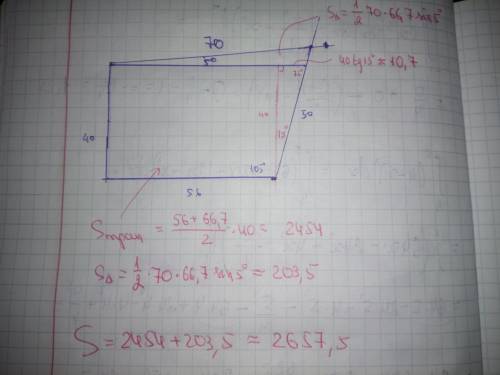 S∆ = 1/2 70·66,7 sin 5°
70
50
75°
40 tg 15° ≈ 10,7
40
40
15°
50
105°
56
Sтрап = (56 + 66,7)/2 · 40 = 2454
S∆ = 1/2 · 70 · 66,7 sin 5° ≈ 203,5
S = 2454 + 203,5 ≈ 2657,5